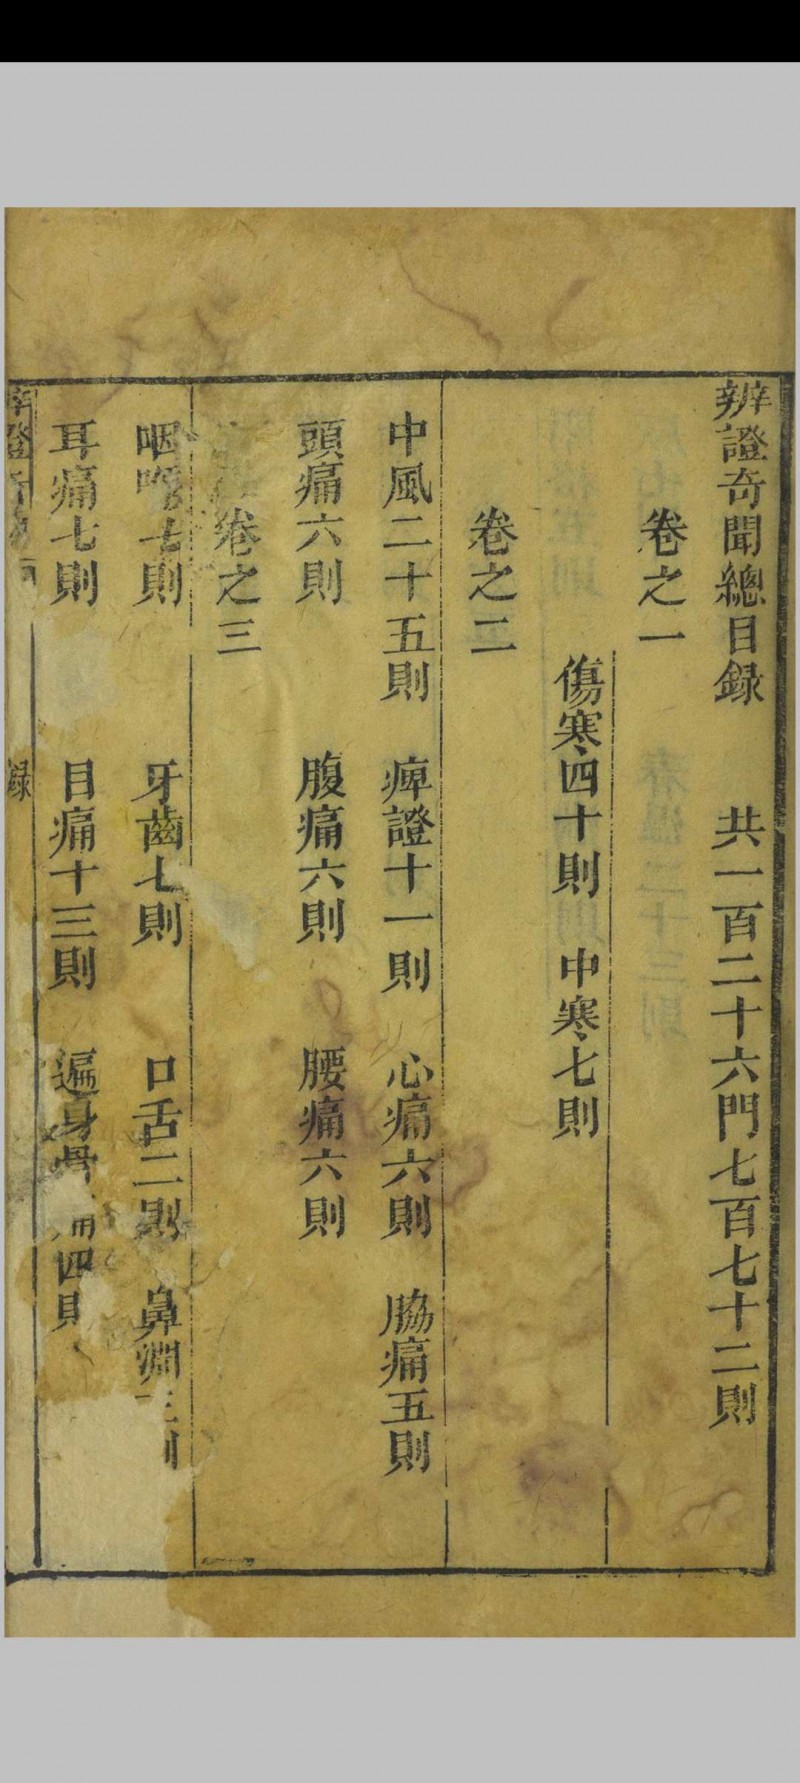 辨證奇聞總目録 共一百二十六門七百七十二則
卷之一
傷寒四十則 中寒七則
卷之二
中風二十五則 痺證十一則 心痛六則 脇痛五則
頭痛六則 腹痛六則 腰痛六則
卷之三
咽喉七則 牙齒七則 口舌二則 鼻淵三則
耳痛七則 目痛十三則 遍身骨 四
錄